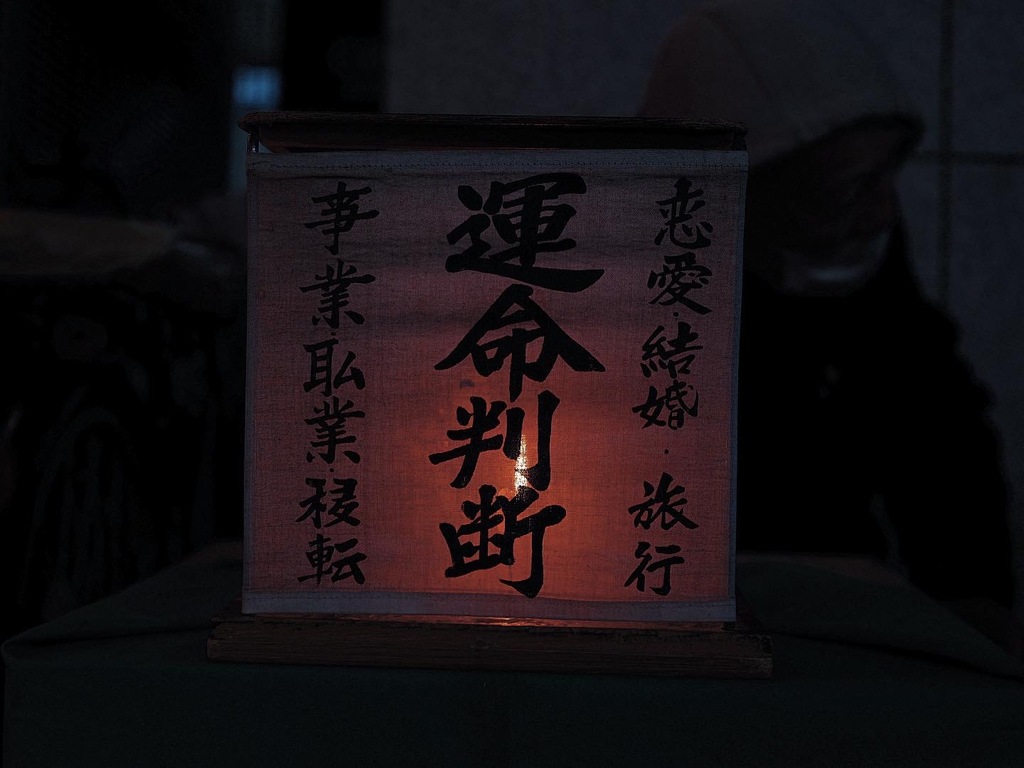 恋愛・結婚・旅行
運命判断
事業・職業・移転